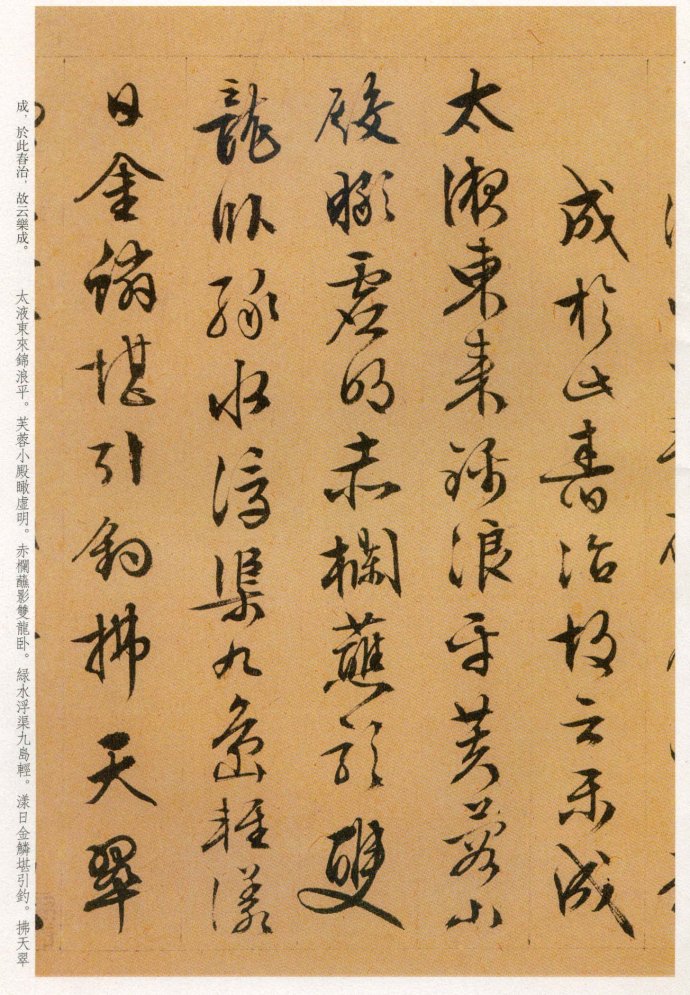 成於此春治故云樂成
太液東來錦浪平芙蓉小
殿瞰虛明赤欄蘸影雙
龍臥綠水浮渠九島輕漾
日金鱗堪引釣拂天翠
成，於此春治，故云樂成。　太液東來錦浪平。芙蓉小殿瞰虛明。赤欄蘸影雙龍卧。緑水浮渠九島輕。漾日金鱗堪引釣。拂天翠